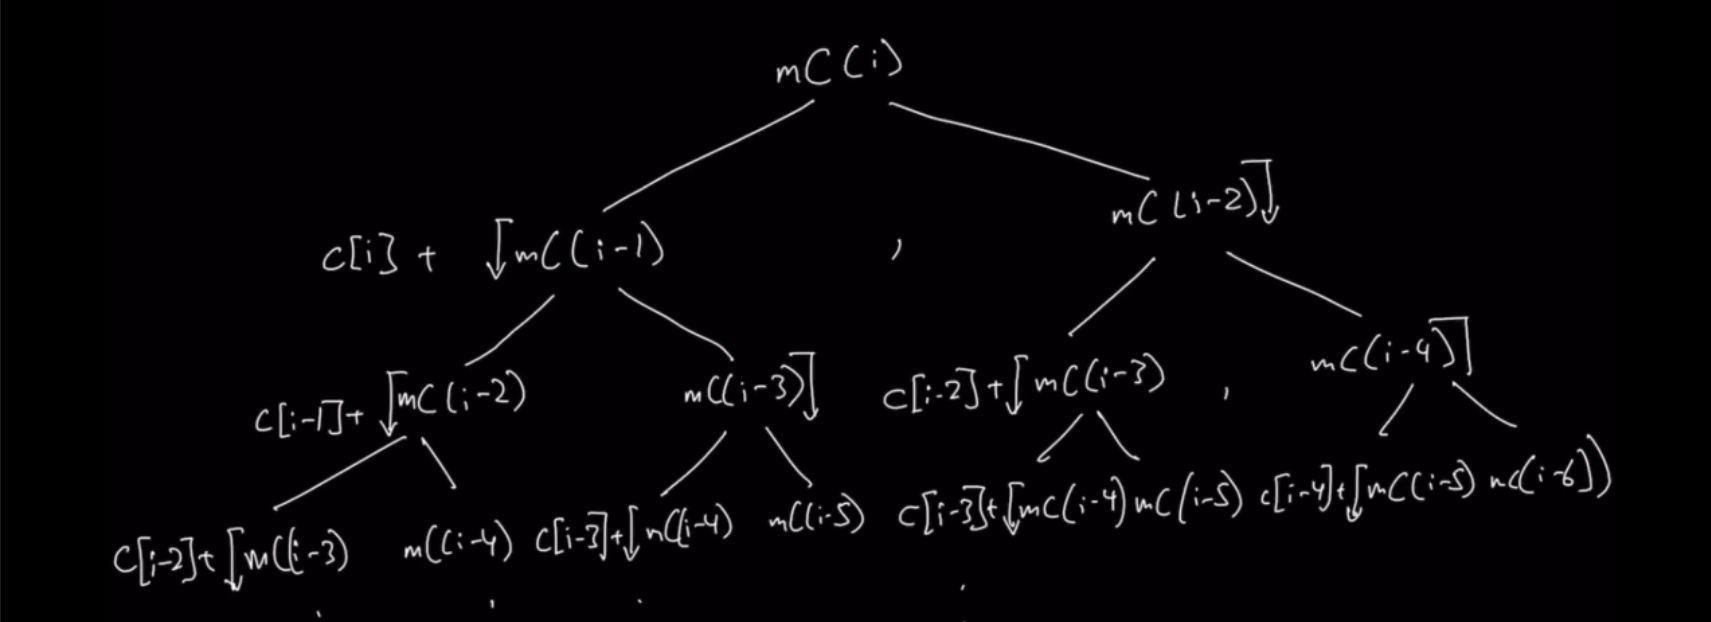 mC(i)
c[i] + ↓mC(i-1) , mC(i-2)↓
c[i-1]+ ↓mC(i-2) mC(i-3)↓ c[i-2]+↓mC(i-3) , mC(i-4)]
c[i-2]+↓mC(i-3) mC(i-4) c[i-3]+↓mC(i-4) mC(i-5) c[i-3]+↓mC(i-4) mC(i-5) c[i-4]+↓mC(i-5) mC(i-6))